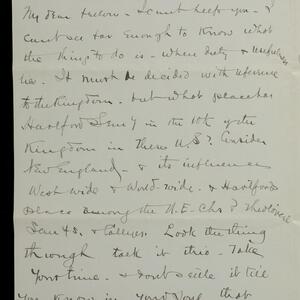 My dear
I cannot help you - I
can't see far enough to know what
the thing to do is - where duty & usefulness
lie. It must be decided with reference
to the Kingdom. But what place has
Hartford Sem'y in the
Kingdom in these U.S.? Consider
New England, - & its influence
West-wide & World-wide, & Hartford's
place among the N.E. Chs & Theological
Sems & Colleges. Look the thing
through talk it
Take
your time. & don't settle it till
you know in your soul that